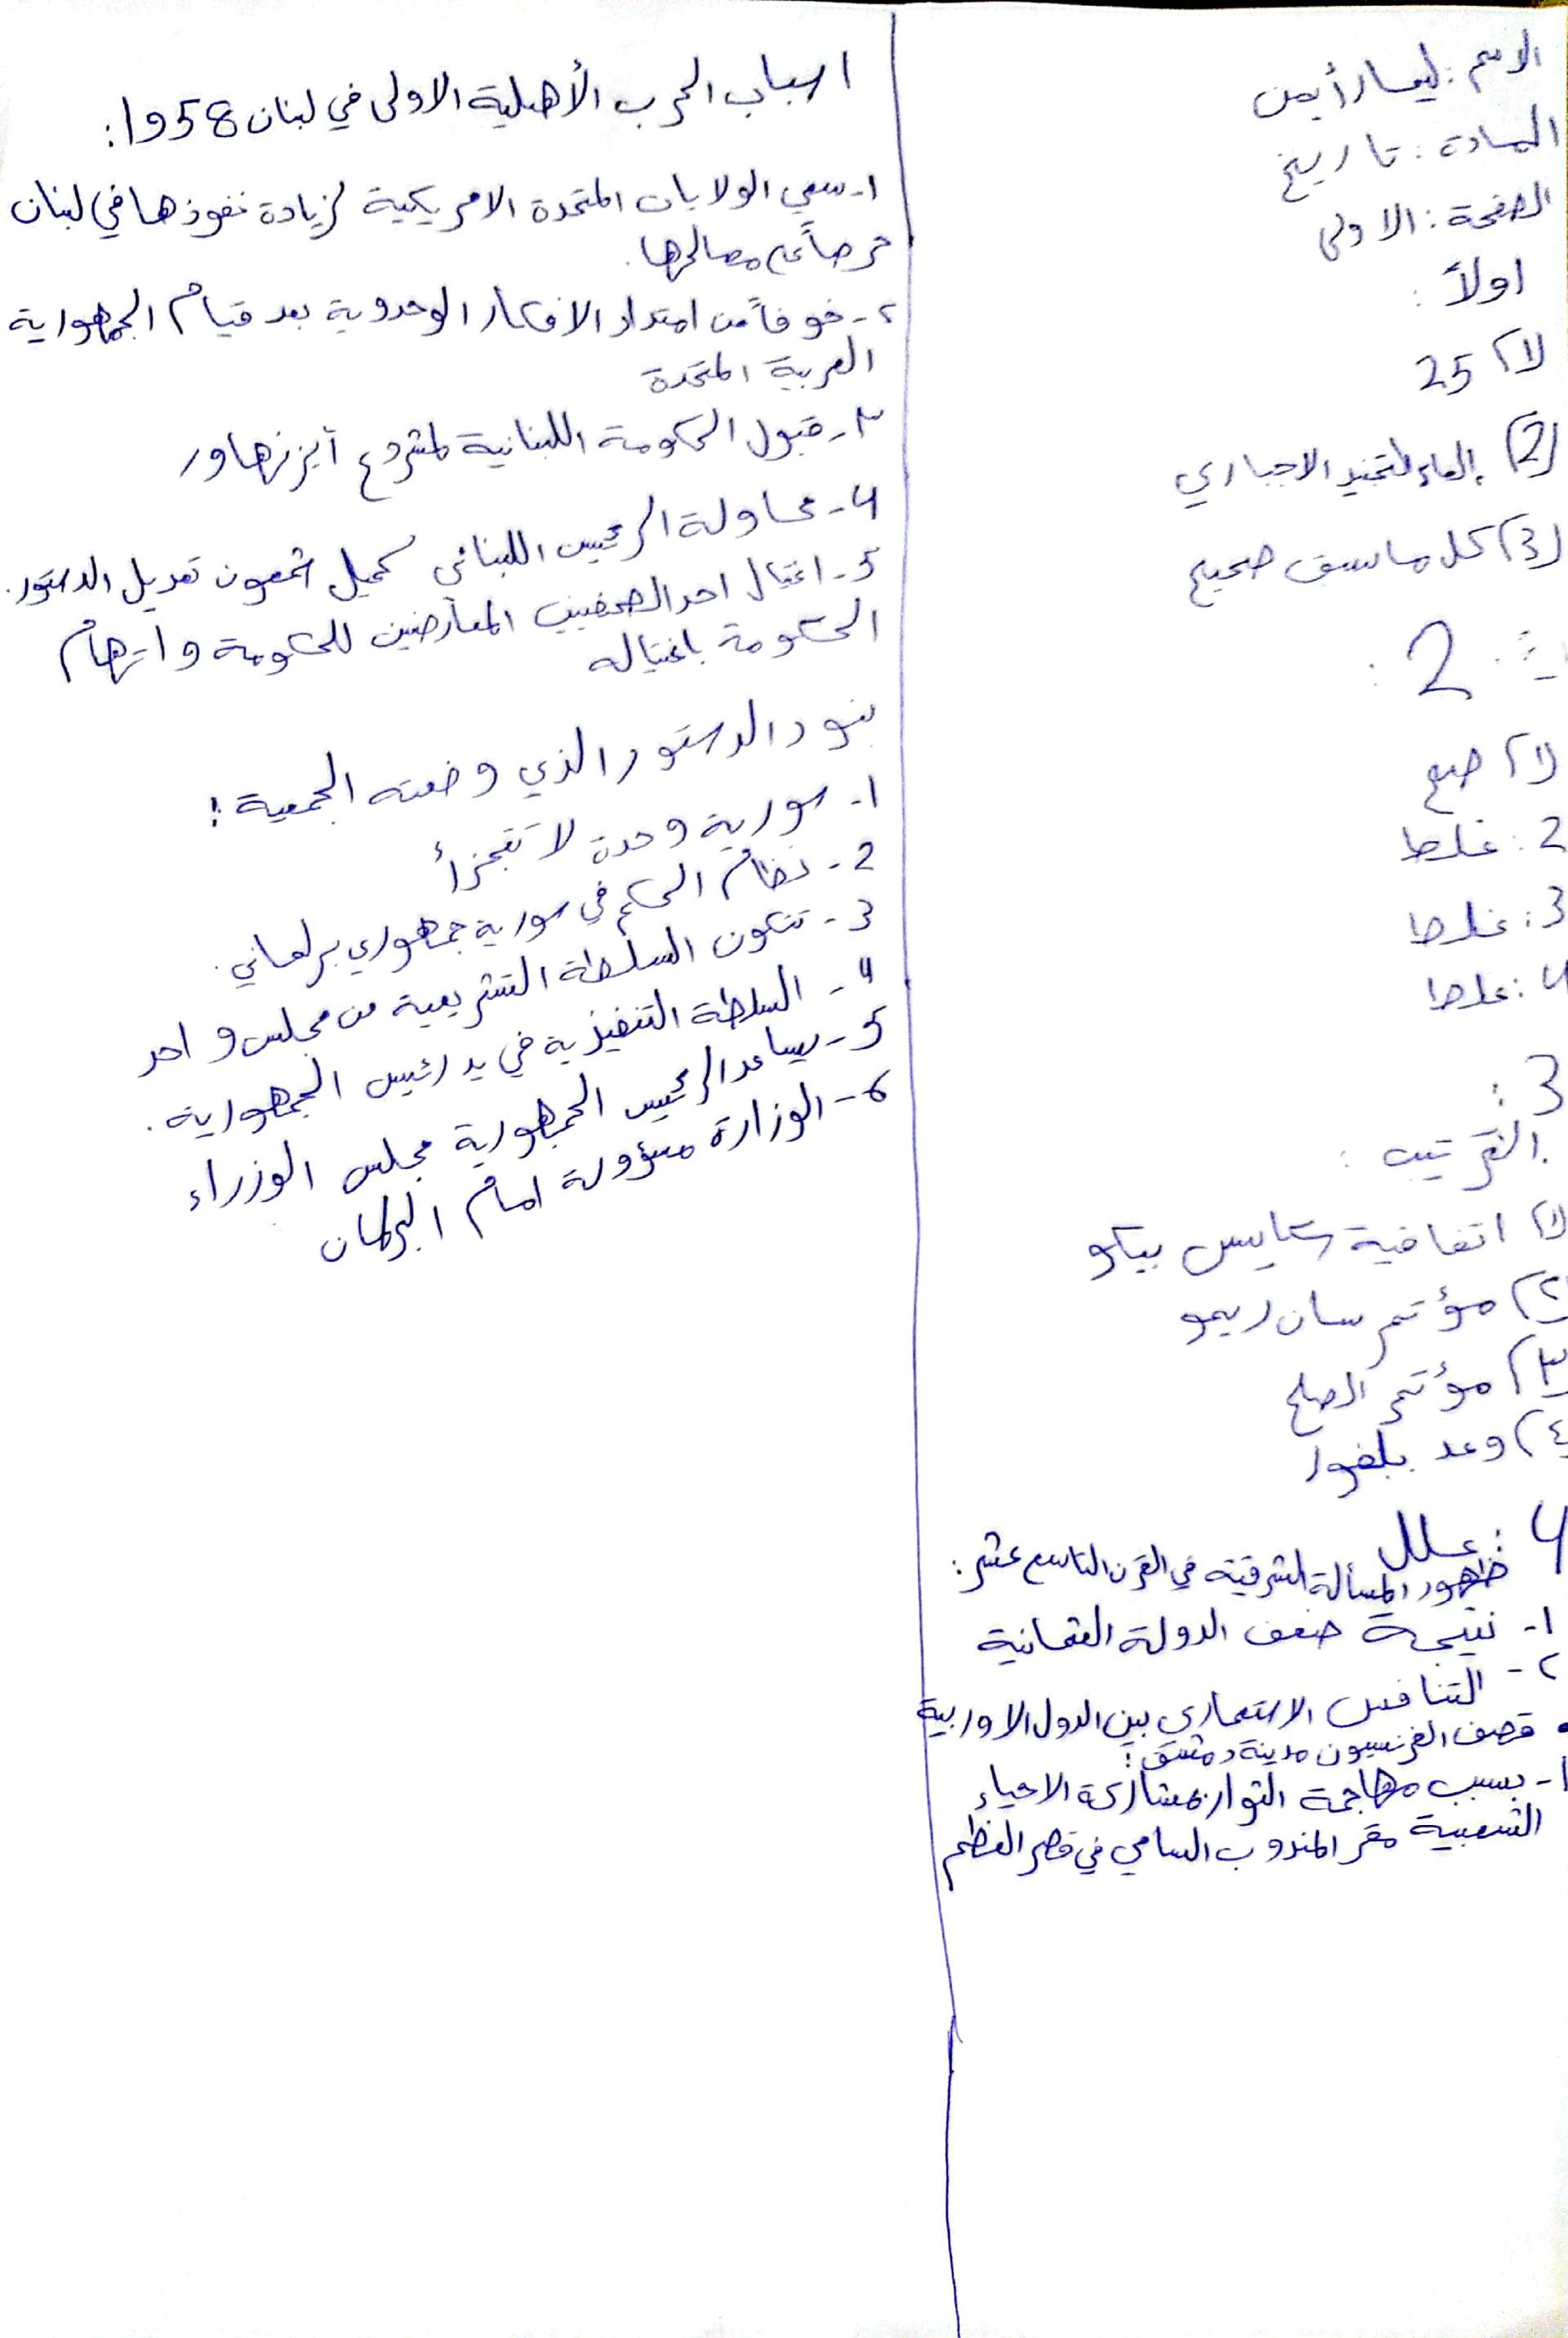 الاسم : ليسار أيمن
المادة : تاريخ
الصفحة : الاولى
اولاً :
1) 25
(2) إلغاء التجنيد الاجباري
(3) كل ما سبق صحيح
2 :
1) صح
2 : غلط
3 : غلط
4 : غلط
3 :
الترتيب :
1) اتفاقية سايكس بيكو
٢) مؤتمر سان ريمو
٣) مؤتمر الصلح
٤) وعد بلفور
4 : علل
ظهور المسألة الشرقية في القرن التاسع عشر :
١- نتيجة ضعف الدولة العثمانية
٢- التنافس الاستعماري بين الدول الاوربية
• قصف الفرنسيون مدينة دمشق :
١- بسبب مهاجمة الثوار بمشاركة الاحياء
الشعبية مقر المندوب السامي في قصر العظم
اسباب الحرب الأهلية الاولى في لبنان 1958 :
١- سعي الولايات المتحدة الامريكية لزيادة نفوذها في لبنان
حرصاً على مصالحها .
٢- خوفاً من امتداد الافكار الوحدوية بعد قيام الجمهورية
العربية المتحدة
٣- قبول الحكومة اللبنانية لمشروع أيزنهاور
4- محاولة الرئيس اللبناني كميل شمعون تعديل الدستور .
5- اغتيال احد الصحفيين المعارضين للحكومة واتهام
الحكومة باغتياله
بنود الدستور الذي وضعته الجمعية :
1- سورية وحدة لا تتجزأ
2- نظام الحكم في سورية جمهوري برلماني .
3- تتكون السلطة التشريعية من مجلس واحد
4- السلطة التنفيذية في يد رئيس الجمهورية .
5- يساعد الرئيس الجمهورية مجلس الوزراء
6- الوزارة مسؤولة امام البرلمان